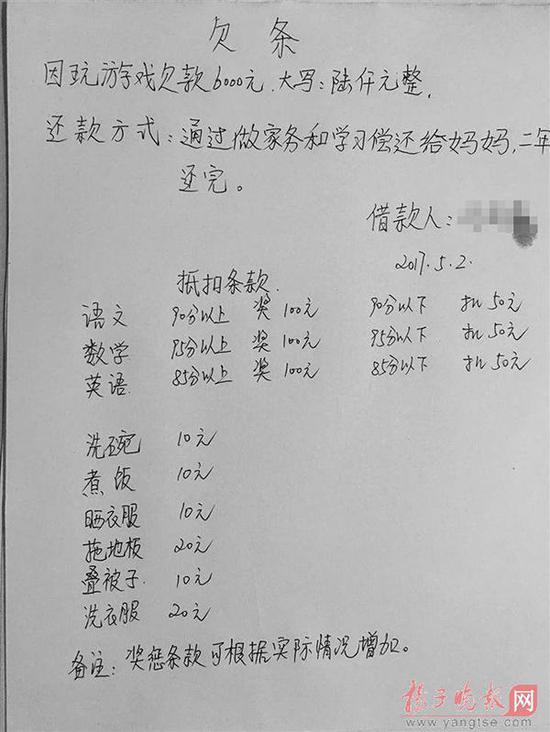 欠条
因玩游戏欠款6000元.大写:陆仟元整.
还款方式:通过做家务和学习偿还给妈妈,二年
还完。
借款人:
2017.5.2.
抵扣条款
语文 90分以上 奖100元 90分以下 扣50元
数学 95分以上 奖100元 95分以下 扣50元
英语 85分以上 奖100元 85分以下 扣50元
洗碗 10元
煮饭 10元
晒衣服 10元
拖地板 20元
叠被子 10元
洗衣服 20元
备注:奖惩条款可根据实际情况增加。
扬子晚报网
www.yangtse.com